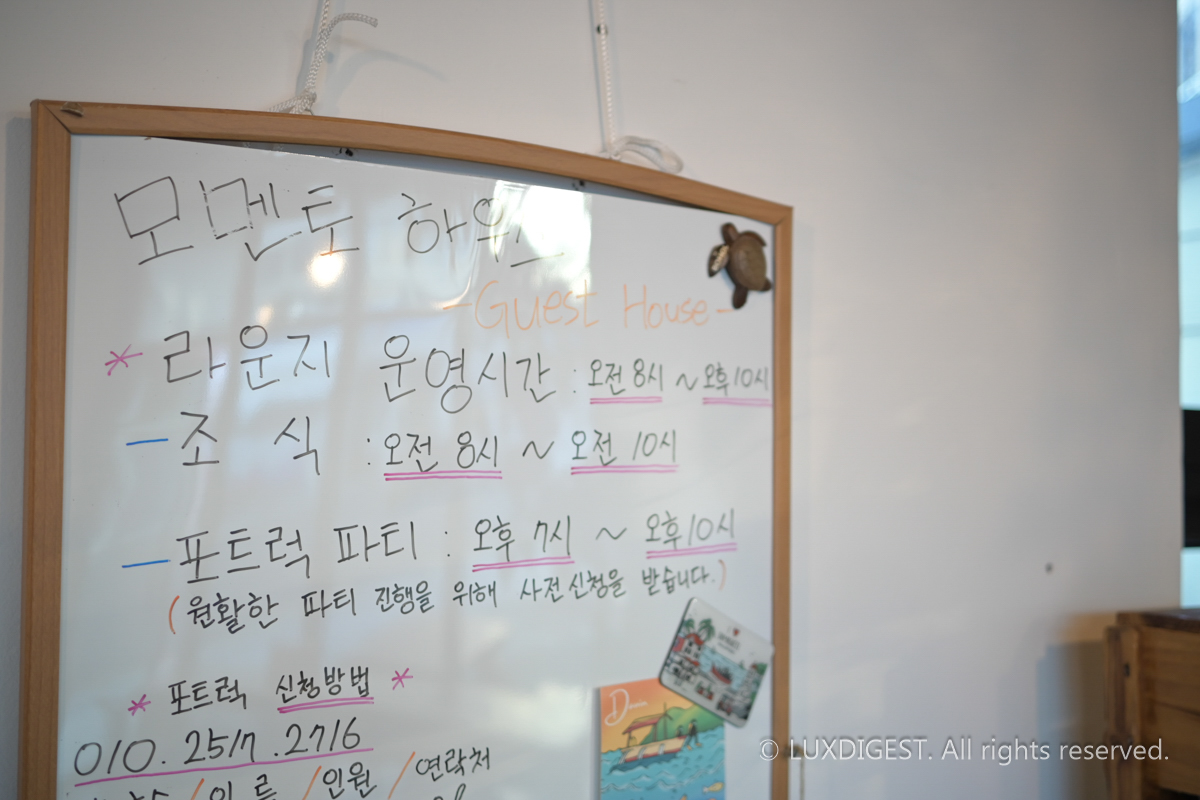 모멘토 하우스
-Guest House-
* 라운지 운영시간 : 오전 8시 ~ 오후 10시
- 조 식 : 오전 8시 ~ 오전 10시
- 포트럭 파티 : 오후 7시 ~ 오후 10시
(원활한 파티 진행을 위해 사전 신청을 받습니다.)
* 포트럭 신청방법 *
010. 2517 .2716
/ 이 름 / 인원 / 연락처
© LUXDIGEST. All rights reserved.